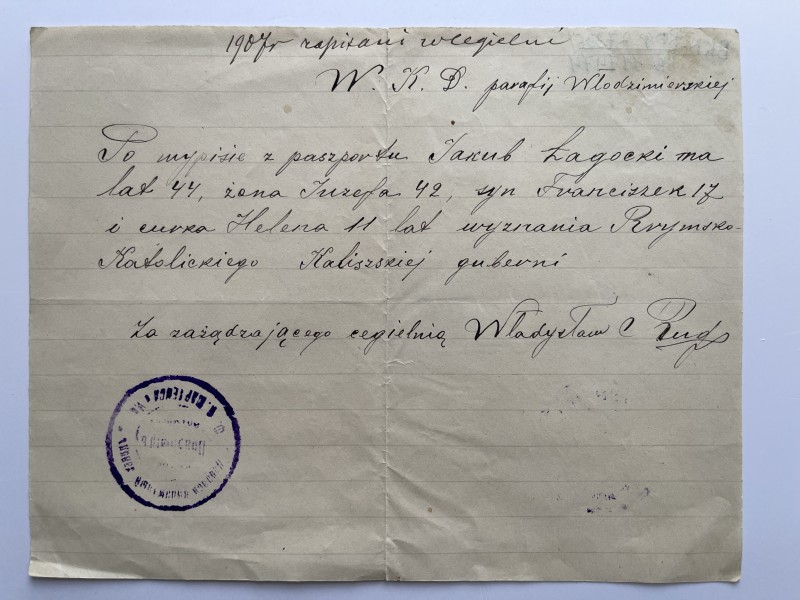 1907r zapisani w Cegielni
W. K. D. parafij Wlodzimierskiej
Po wypisie z paszportu Jakub Łagocki ma
lat 44, żona Juzefa 42, syn Franciszek 17
i curka Helena 11 lat wyznania Rzymsko-
Katolickiego Kaliszskiej guberni
Za zażądzającego cegielnią Władysław